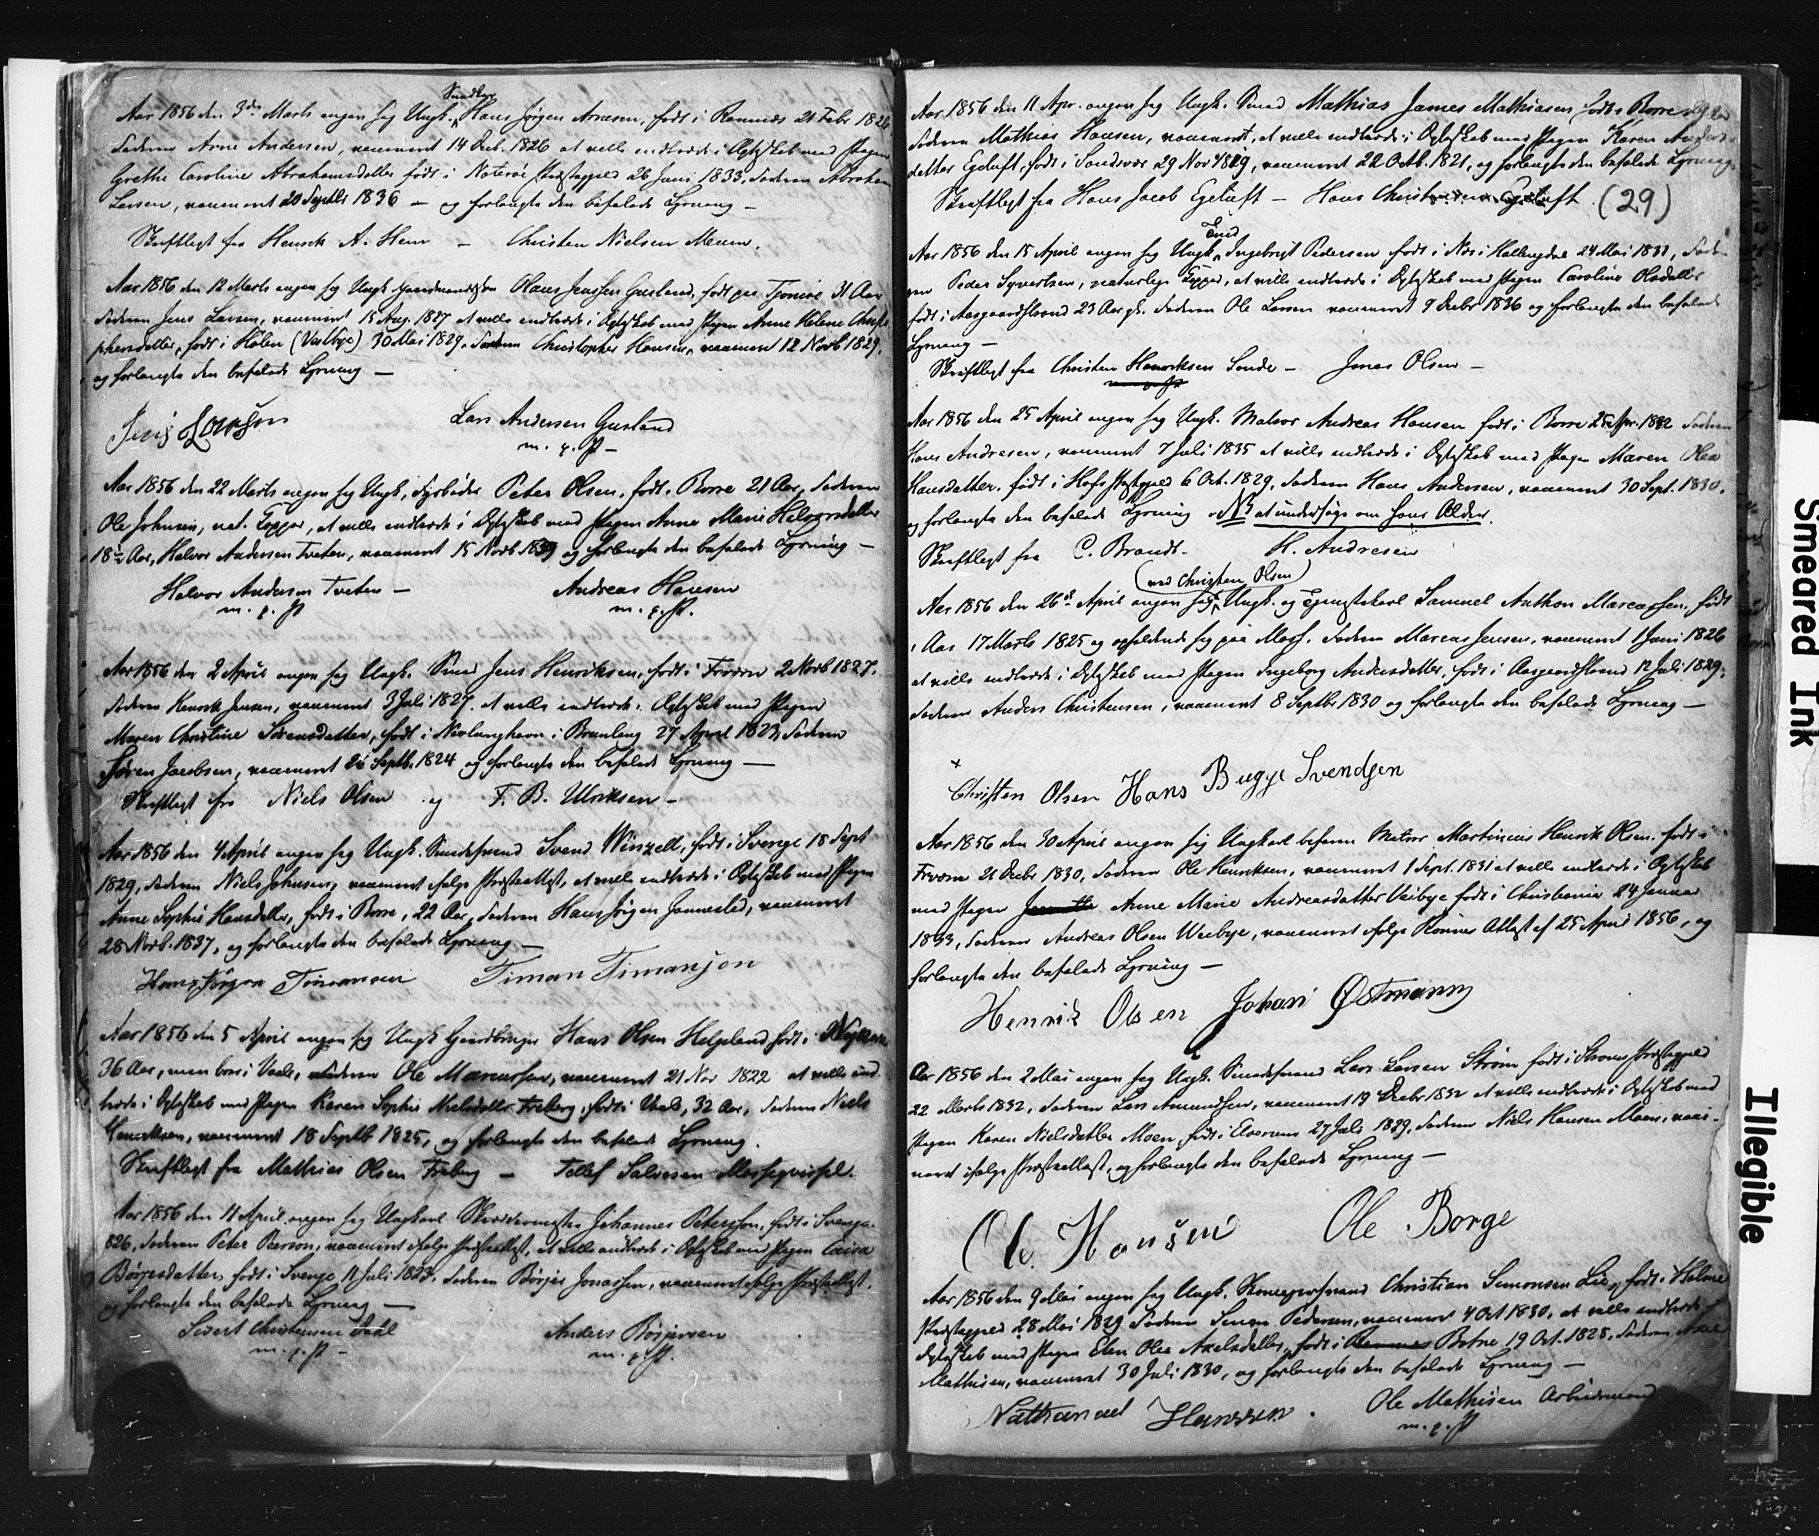 Smedkar
Aar 1856 den 3die Marts angav sig Ungk. Hans Jørgen Arnesen, født i Ramnæs 21 Febr 1826
Faderen Arne Andersen, vaccineret 14 Dec. 1826 at ville indtræde i Ægteskab med Pigen
Grethe Caroline Abrahamsdatter født i Nøterø Præstegjeld 26 Juni 1833, Faderen Abraham
Larsen, vaccineret 20 Septbr 1836 – og forlangte den befalede Lysning –
Skriftligt fra Henrik A. Hem – Christen Nielsen Meum.
Aar 1856 den 12 Marts angav sig Ungk. Gaardmandssøn Hans Jenssen Gusland, født paa Tjømø 31 Aar
Faderen Jens Larsen, vaccineret 15 Aug. 1827 at ville indtræde i Ægteskab med Pigen Anne Helene Christo
phersdatter, født i Hølen (Vestbye) 30 Mai 1829. Faderen Christopher Hansen, vaccineret 12 Novb 1829.
og forlangte den befalede Lysning –
Jens Larssen Lars Andersen Gusland
m. p. P –
Aar 1856 den 22 Marts angav sig Ungk. Fyrbøder Peter Olsen, født i Borre 21 Aar, Faderen
Ole Johnsen, nat. Kopper, at ville indtræde i Ægteskab med Pigen Anne Marie Halvorsdatter
18½ Aar, Halvor Andersen Tveten, vaccineret 15 Novb 1839 og forlangte den befalede Lysning –
Halvor Andersen Tveten – Andreas Hansen
m. p. P m. p. P.
Aar 1856 den 2 April angav sig Ungk. Smed Jens Henriksen, født i Froen 2 Novb 1827.
Faderen Henrik Jensen, vaccineret 3 Juli 1829. at ville indtræde i Ægteskab med Pigen
Maren Christine Sørensdatter, født i Nevlunghavn i Brunlaug 27 April 1823, Faderen
Søren Jacobsen, vaccineret 26 Septb. 1824 og forlangte den befalede Lysning –
Skriftligt fra Niels Olsen og F. B. Ulriksen –
Aar 1856 den 4 April angav sig Ungk. Smedesvend Svend Winzell, født i Sverige 18 Sept
1829, Faderen Niels Johnsen, vaccineret ifølge Præsteattest, at ville indtræde i Ægteskab med Pigen
Anne Sophie Hansdatter, født i Borre, 22 Aar, Faderen Hans Jørgen, vaccineret
28 Novb. 1837, og forlangte den befalede Lysning –
Hans Jørgen Timansen Timan Timansen
Aar 1856 den 5 April angav sig Ungk Gaardbruger Hans Olsen Helgeland, født i
36 Aar, men boer i Vaale, Faderen Ole Marcussen, vaccineret 21 Nov 1822 at ville ind
træde i Ægteskab med Pigen Karen Sophie Nielsdatter Freberg, født i Vaale, 32 Aar, Faderen Niels
Henriksen, vaccineret 18 Septb 1825, og forlangte den befalede Lysning.
Skriftligt fra Mathias Olsen Freberg – Tellef Salvesen
Aar 1856 den 11 April angav sig Ungkarl Skræddermester Johannes Petersson, født i Sverige
826, Faderen Peter Person, vaccineret ifølge Præsteattest, at ville indtræde i Ægteskab med Pigen Caisa
Børjesdatter, født i Sverige 11 Juli 1823. Faderen Børje Jonassen, vaccineret ifølge Præsteattest.
og forlangte den befalede Lysning –
Sivert Christensen Dahl Anders Børjersen
m. p. P – m. p. P.
Aar 1856 den 11 Apr. angav sig Ungk. Smed Mathias James Mathiasen født i Borre
Faderen Mathias Hansen, vaccineret, at ville indtræde i Ægteskab med Pigen Karen Anders
datter Egeluft, født i Sandsvær 29 Nov 1829, vaccineret 22 Octb. 1821, og forlangte den befalede Lysning.
Skriftligt fra Hans Jacob Egeluft – Hans Christensen Egeluft. (29)
Aar 1856 den 15 April angav sig Ungk. Ingebrigt Pedersen født i Næs i Hallingdal 24 Mai 1831, Fader
en Peder Syvertsen, naturlige Kopper, at ville indtræde i Ægteskab med Pigen Caroline Olsdatter
født i Aasgaardstrand 23 Aar gl. Faderen Ole Larsen vaccineret 9 Decbr 1836 og forlangte den befalede
Lysning –
Skriftligt fra Christen Henriksen Sonde – Jonas Olsen –
Aar 1856 den 25 April angav sig Ungk. Matros Andreas Hansen født i Borre 25 Apr. 1832 Faderen
Hans Andresen, vaccineret 7 Juli 1835 at ville indtræde i Ægteskab med Pigen Maren Olea
Hansdatter. født i Hofs Præstegjeld 6 Oct. 1829. Faderen Hans Andersen, vaccineret 30 Sept. 1830.
og forlangte den befalede Lysning NB at undersøge om hans Alder.
Skriftligt fra C. Brandt. H. Andresen
(ved Christen Olsen)
Aar 1856 den 26de April angav sig Ungk. og Tjenestekarl Samuel Anthon Marcussen, født
i Aas 17 Marts 1825 og opholdende sig paa Moss. Faderen Marcus Jensen, vaccineret 1 Juni 1826
at ville indtræde i Ægteskab med Pigen Ingeborg Andersdatter, født i Aasgaardstrand 12 Juli 1829.
Faderen Anders Christensen, vaccineret 8 Septbr 1830 og forlangte den befalede Lysning –
x
Christen Olsen Hans Bugge Svendsen
Aar 1856 den 30 April angav sig Ungkarl befaren Matros Martinius Henrik Olsen. født i
Froen 21 Decbr 1830, Faderen Ole Henriksen, vaccineret 1 Sept. 1831 at ville indtræde i Ægteskab
med Pigen Anne Marie Andreasdatter Veibye født i Christiania 24 Januar
1833, Faderen Andreas Olsen Weebye, vaccineret ifølge Attest af 25 April 1856, og
forlangte den befalede Lysning –
Henrik Olsen Johan Østmann
Aar 1856 den 2 Mai angav sig Ungk. Smedesvend Lars Larsen Strøm født i Strøms Præstegjeld
22 Marts 1832, Faderen Lars Amundsen, vaccineret 19 Decbr 1832 at ville indtræde i Ægteskab med
Pigen Karen Nielsdatter Moen, født i Elverum 27 Juli 1829, Faderen Niels Hansen Moen, vacci-
neret ifølge Præsteattest, og forlangte den befalede Lysning –
Ole Hansen Ole Borge
Aar 1856 den 9 Mai angav sig Ungk. Christian Simonsen Lie, født i
Præstegjeld 28 Mai 1829 Faderen Simon Pedersen, vaccineret 4 Oct 1830, at ville indtræde i
Ægteskab med Pigen Elen Olea Axelsdatter, født i Botne 19 Oct. 1828, Faderen Axel
Mathisen, vaccineret 30 Juli 1830, og forlangte den befalede Lysning –
Nathanael Hanssen. Ole Mathisen Arbeidsmand
m. p. P
Smeared Ink
Illegible